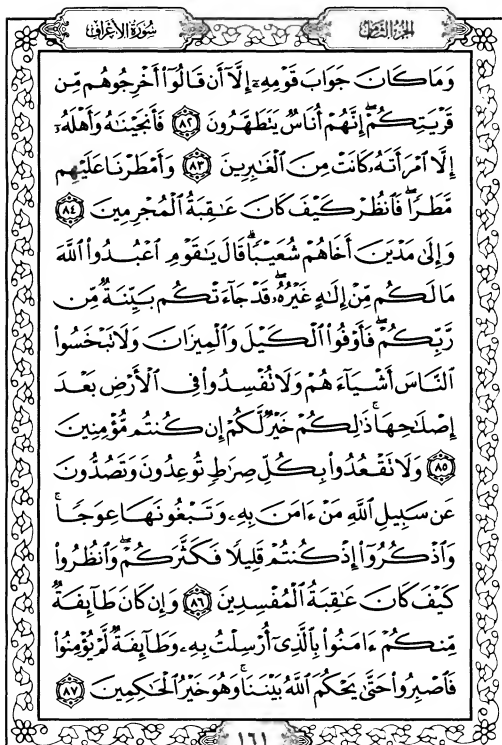 سُورَةُ الأَعْرَافِ
الجُزْءُ الثَّامِنُ
وَمَا كَانَ جَوَابَ قَوْمِهِۦٓ إِلَّآ أَن قَالُوٓا۟ أَخْرِجُوهُم مِّن
قَرْيَتِكُمْ ۖ إِنَّهُمْ أُنَاسٌ يَتَطَهَّرُونَ ٨٢ فَأَنجَيْنَـٰهُ وَأَهْلَهُۥٓ
إِلَّا ٱمْرَأَتَهُۥ كَانَتْ مِنَ ٱلْغَـٰبِرِينَ ٨٣ وَأَمْطَرْنَا عَلَيْهِم
مَّطَرًا ۖ فَٱنظُرْ كَيْفَ كَانَ عَـٰقِبَةُ ٱلْمُجْرِمِينَ ٨٤
وَإِلَىٰ مَدْيَنَ أَخَاهُمْ شُعَيْبًا ۗ قَالَ يَـٰقَوْمِ ٱعْبُدُوا۟ ٱللَّهَ
مَا لَكُم مِّنْ إِلَـٰهٍ غَيْرُهُۥ ۖ قَدْ جَآءَتْكُم بَيِّنَةٌ مِّن
رَّبِّكُمْ ۖ فَأَوْفُوا۟ ٱلْكَيْلَ وَٱلْمِيزَانَ وَلَا تَبْخَسُوا۟
ٱلنَّاسَ أَشْيَآءَهُمْ وَلَا تُفْسِدُوا۟ فِى ٱلْأَرْضِ بَعْدَ
إِصْلَـٰحِهَا ۚ ذَٰلِكُمْ خَيْرٌ لَّكُمْ إِن كُنتُم مُّؤْمِنِينَ
٨٥ وَلَا تَقْعُدُوا۟ بِكُلِّ صِرَٰطٍ تُوعِدُونَ وَتَصُدُّونَ
عَن سَبِيلِ ٱللَّهِ مَنْ ءَامَنَ بِهِۦ وَتَبْغُونَهَا عِوَجًا ۚ
وَٱذْكُرُوٓا۟ إِذْ كُنتُمْ قَلِيلًا فَكَثَّرَكُمْ ۖ وَٱنظُرُوا۟
كَيْفَ كَانَ عَـٰقِبَةُ ٱلْمُفْسِدِينَ ٨٦ وَإِن كَانَ طَآئِفَةٌ
مِّنكُمْ ءَامَنُوا۟ بِٱلَّذِىٓ أُرْسِلْتُ بِهِۦ وَطَآئِفَةٌ لَّمْ يُؤْمِنُوا۟
فَٱصْبِرُوا۟ حَتَّىٰ يَحْكُمَ ٱللَّهُ بَيْنَنَا ۚ وَهُوَ خَيْرُ ٱلْحَـٰكِمِينَ ٨٧
١٦١